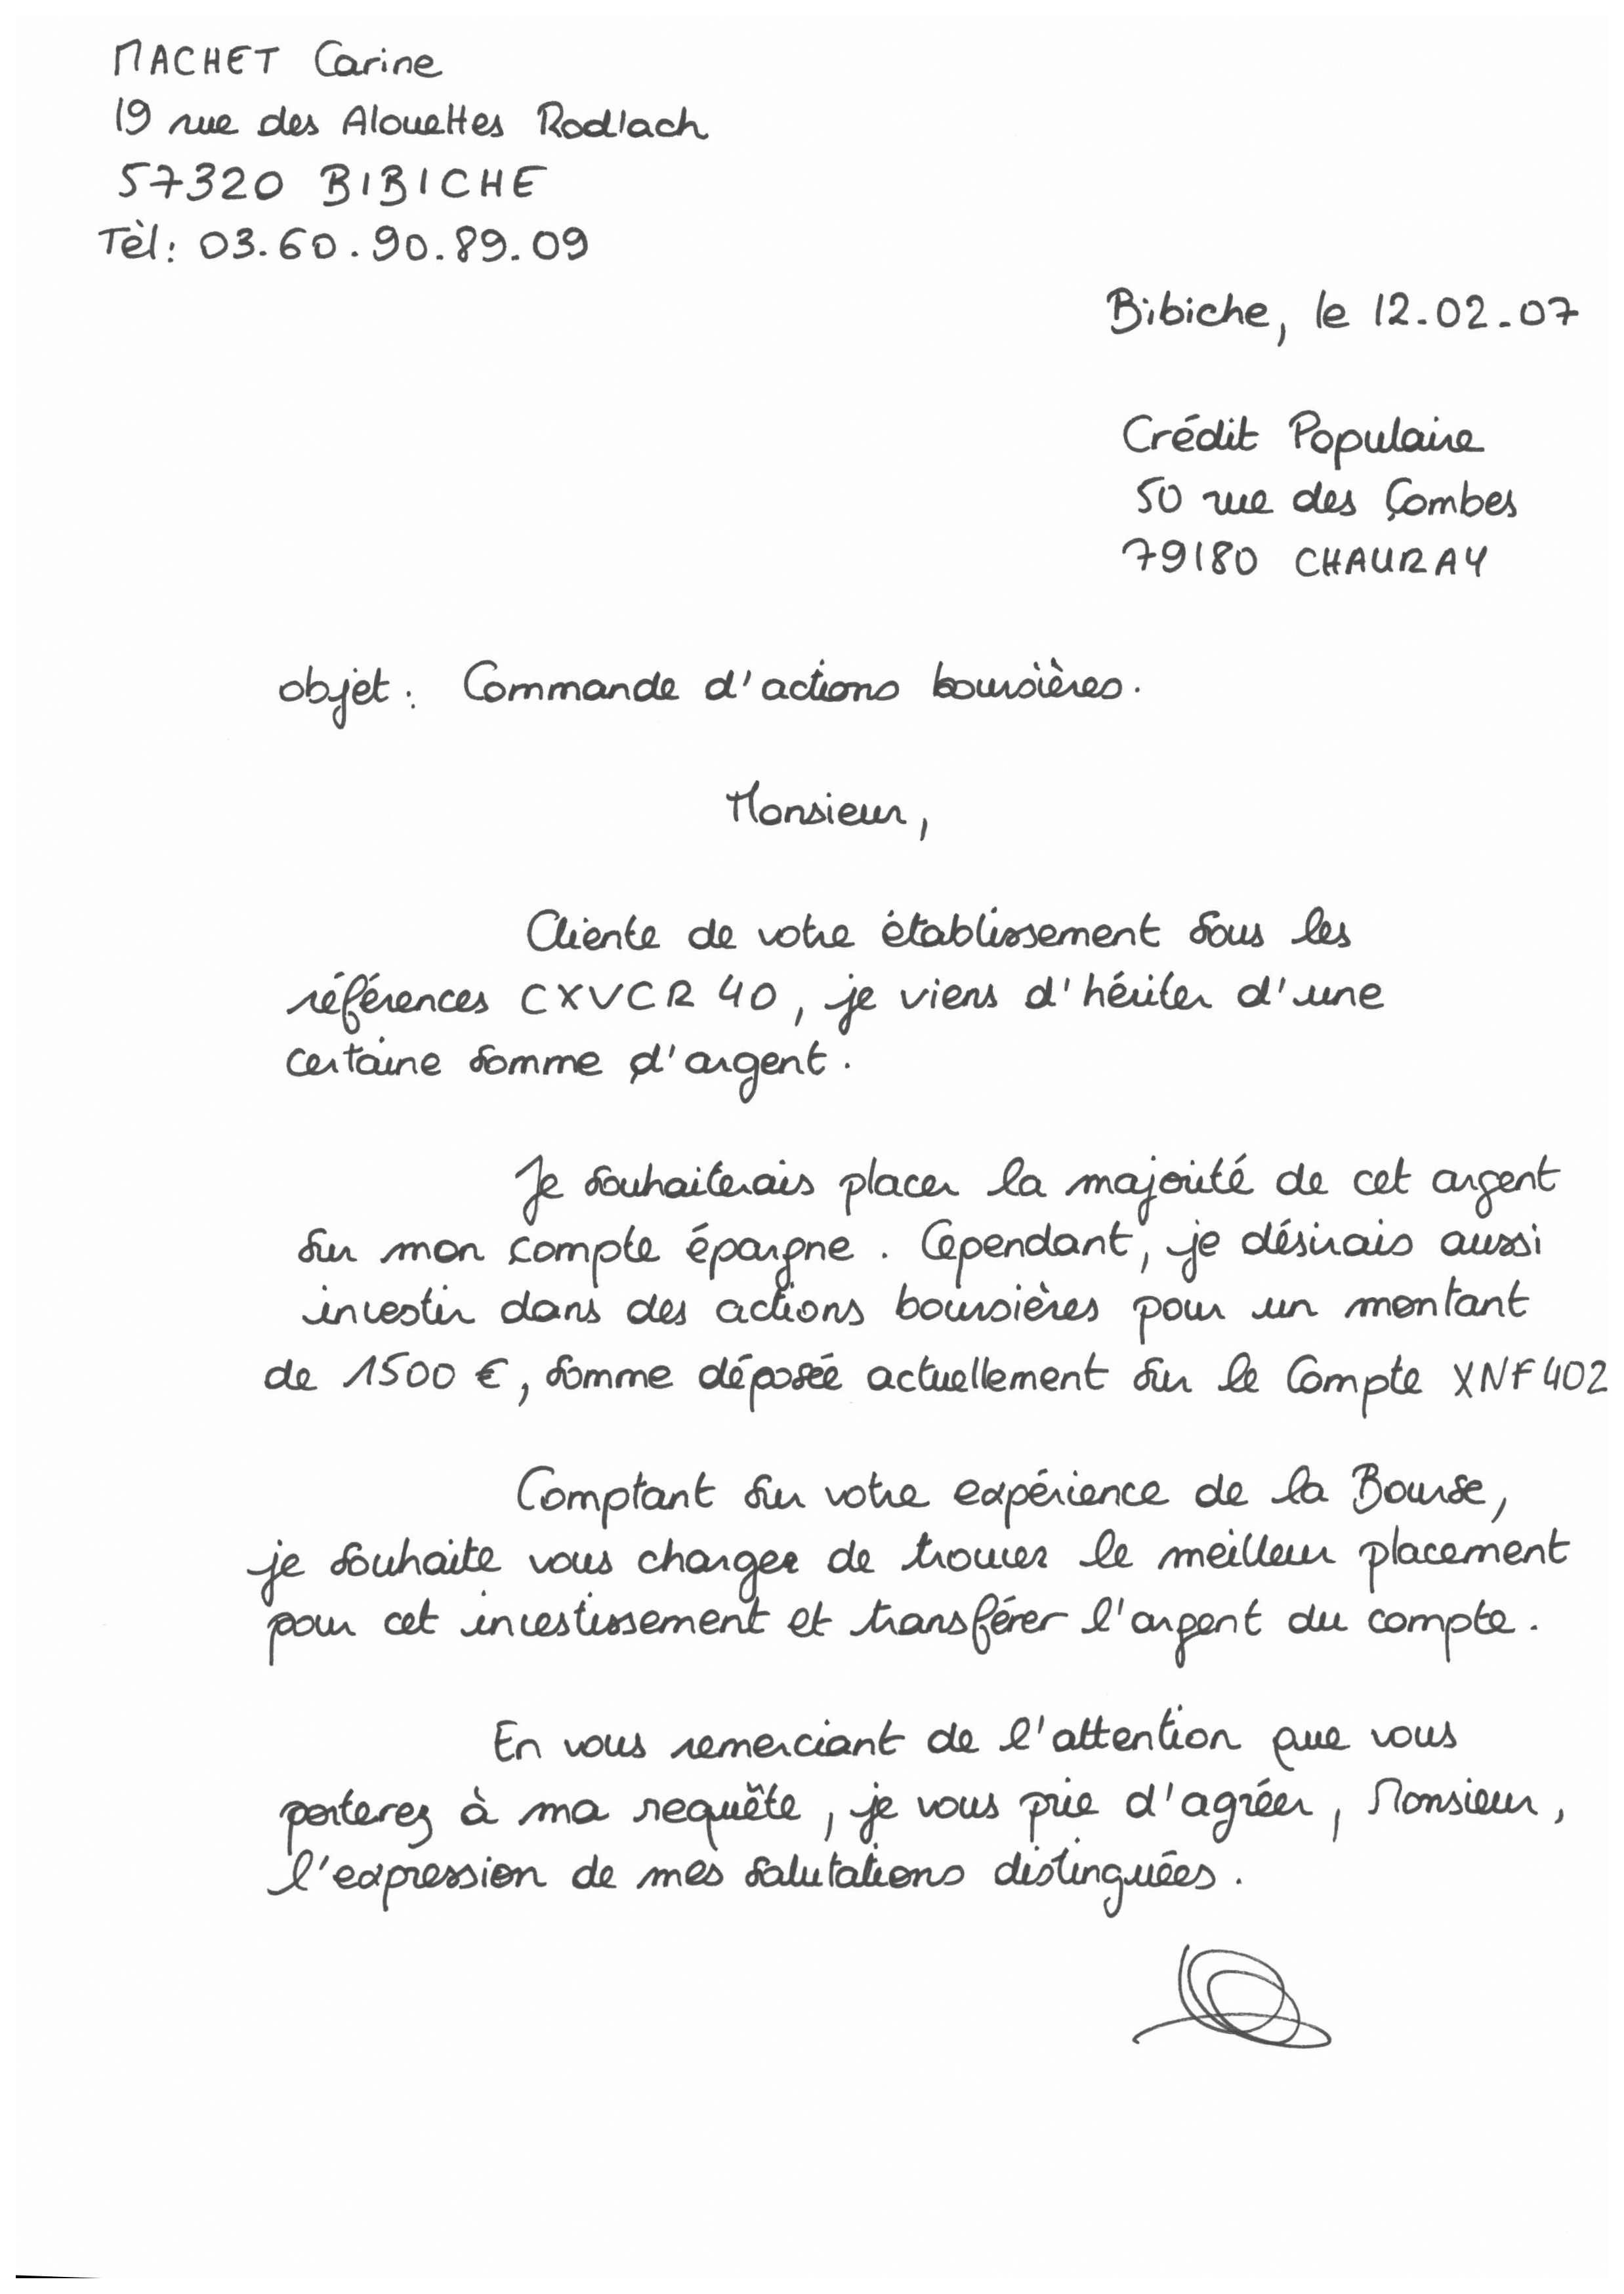 MACHET Carine
19 rue des Alouettes Rodlach
57320 BIBICHE
Tèl: 03.60.90.89.09
Bibiche, le 12.02.07
Crédit Populaire
50 rue des Combes
79180 CHAURAY
objet : Commande d'actions boursières.
Monsieur,
Cliente de votre établissement sous les
références CXVCR 40, je viens d'hériter d'une
certaine somme d'argent.
Je souhaiterais placer la majorité de cet argent
sur mon compte épargne. Cependant, je désirais aussi
investir dans des actions boursières pour un montant
de 1500 €, somme déposée actuellement sur le Compte XNF402
Comptant sur votre expérience de la Bourse,
je souhaite vous charger de trouver le meilleur placement
pour cet investissement et transférer l'argent du compte.
En vous remerciant de l'attention que vous
porterez à ma requête, je vous prie d'agréer, Monsieur,
l'expression de mes salutations distinguées.